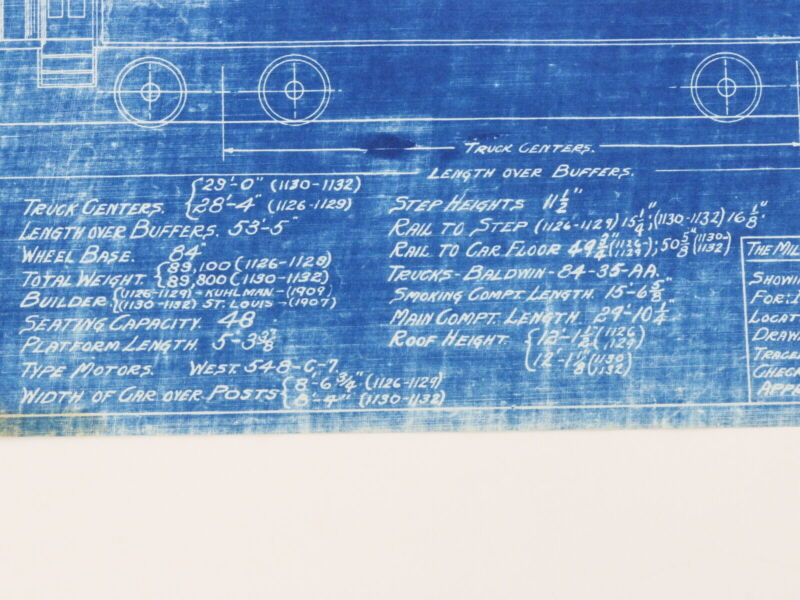 TRUCK CENTERS.
LENGTH OVER BUFFERS.
TRUCK CENTERS. {29'-0" (1130-1132)
28'-4" (1126-1129)
LENGTH OVER BUFFERS. 53'-5"
WHEEL BASE. 84"
TOTAL WEIGHT. {89,100 (1126-1129)
89,800 (1130-1132)
BUILDER. {(1126-1129) - KUHLMAN - (1909)
(1130-1132) ST. LOUIS - (1907)
SEATING CAPACITY. 48
PLATFORM LENGTH. 5'-3 7/8"
TYPE MOTORS. WEST. 548-C-7.
WIDTH OF CAR OVER POSTS {8'-6 3/4" (1126-1129)
8'-4" (1130-1132)
STEP HEIGHTS 11 1/2"
RAIL TO STEP (1126-1129) 15 1/4"; (1130-1132) 16 1/8"
RAIL TO CAR FLOOR 49 3/4" (1126-1129); 50 5/8" (1130-1132)
TRUCKS - BALDWIN - 84-35-AA.
SMOKING COMPT. LENGTH. 15'-6 5/8"
MAIN COMPT. LENGTH. 29'-10 1/4"
ROOF HEIGHT. {12'-1 1/2" (1126-1129)
12'-1 1/8" (1130-1132)
THE MIL
SHOWI
FOR:
LOCAT
DRAW
TRACE
CHECK
APPE